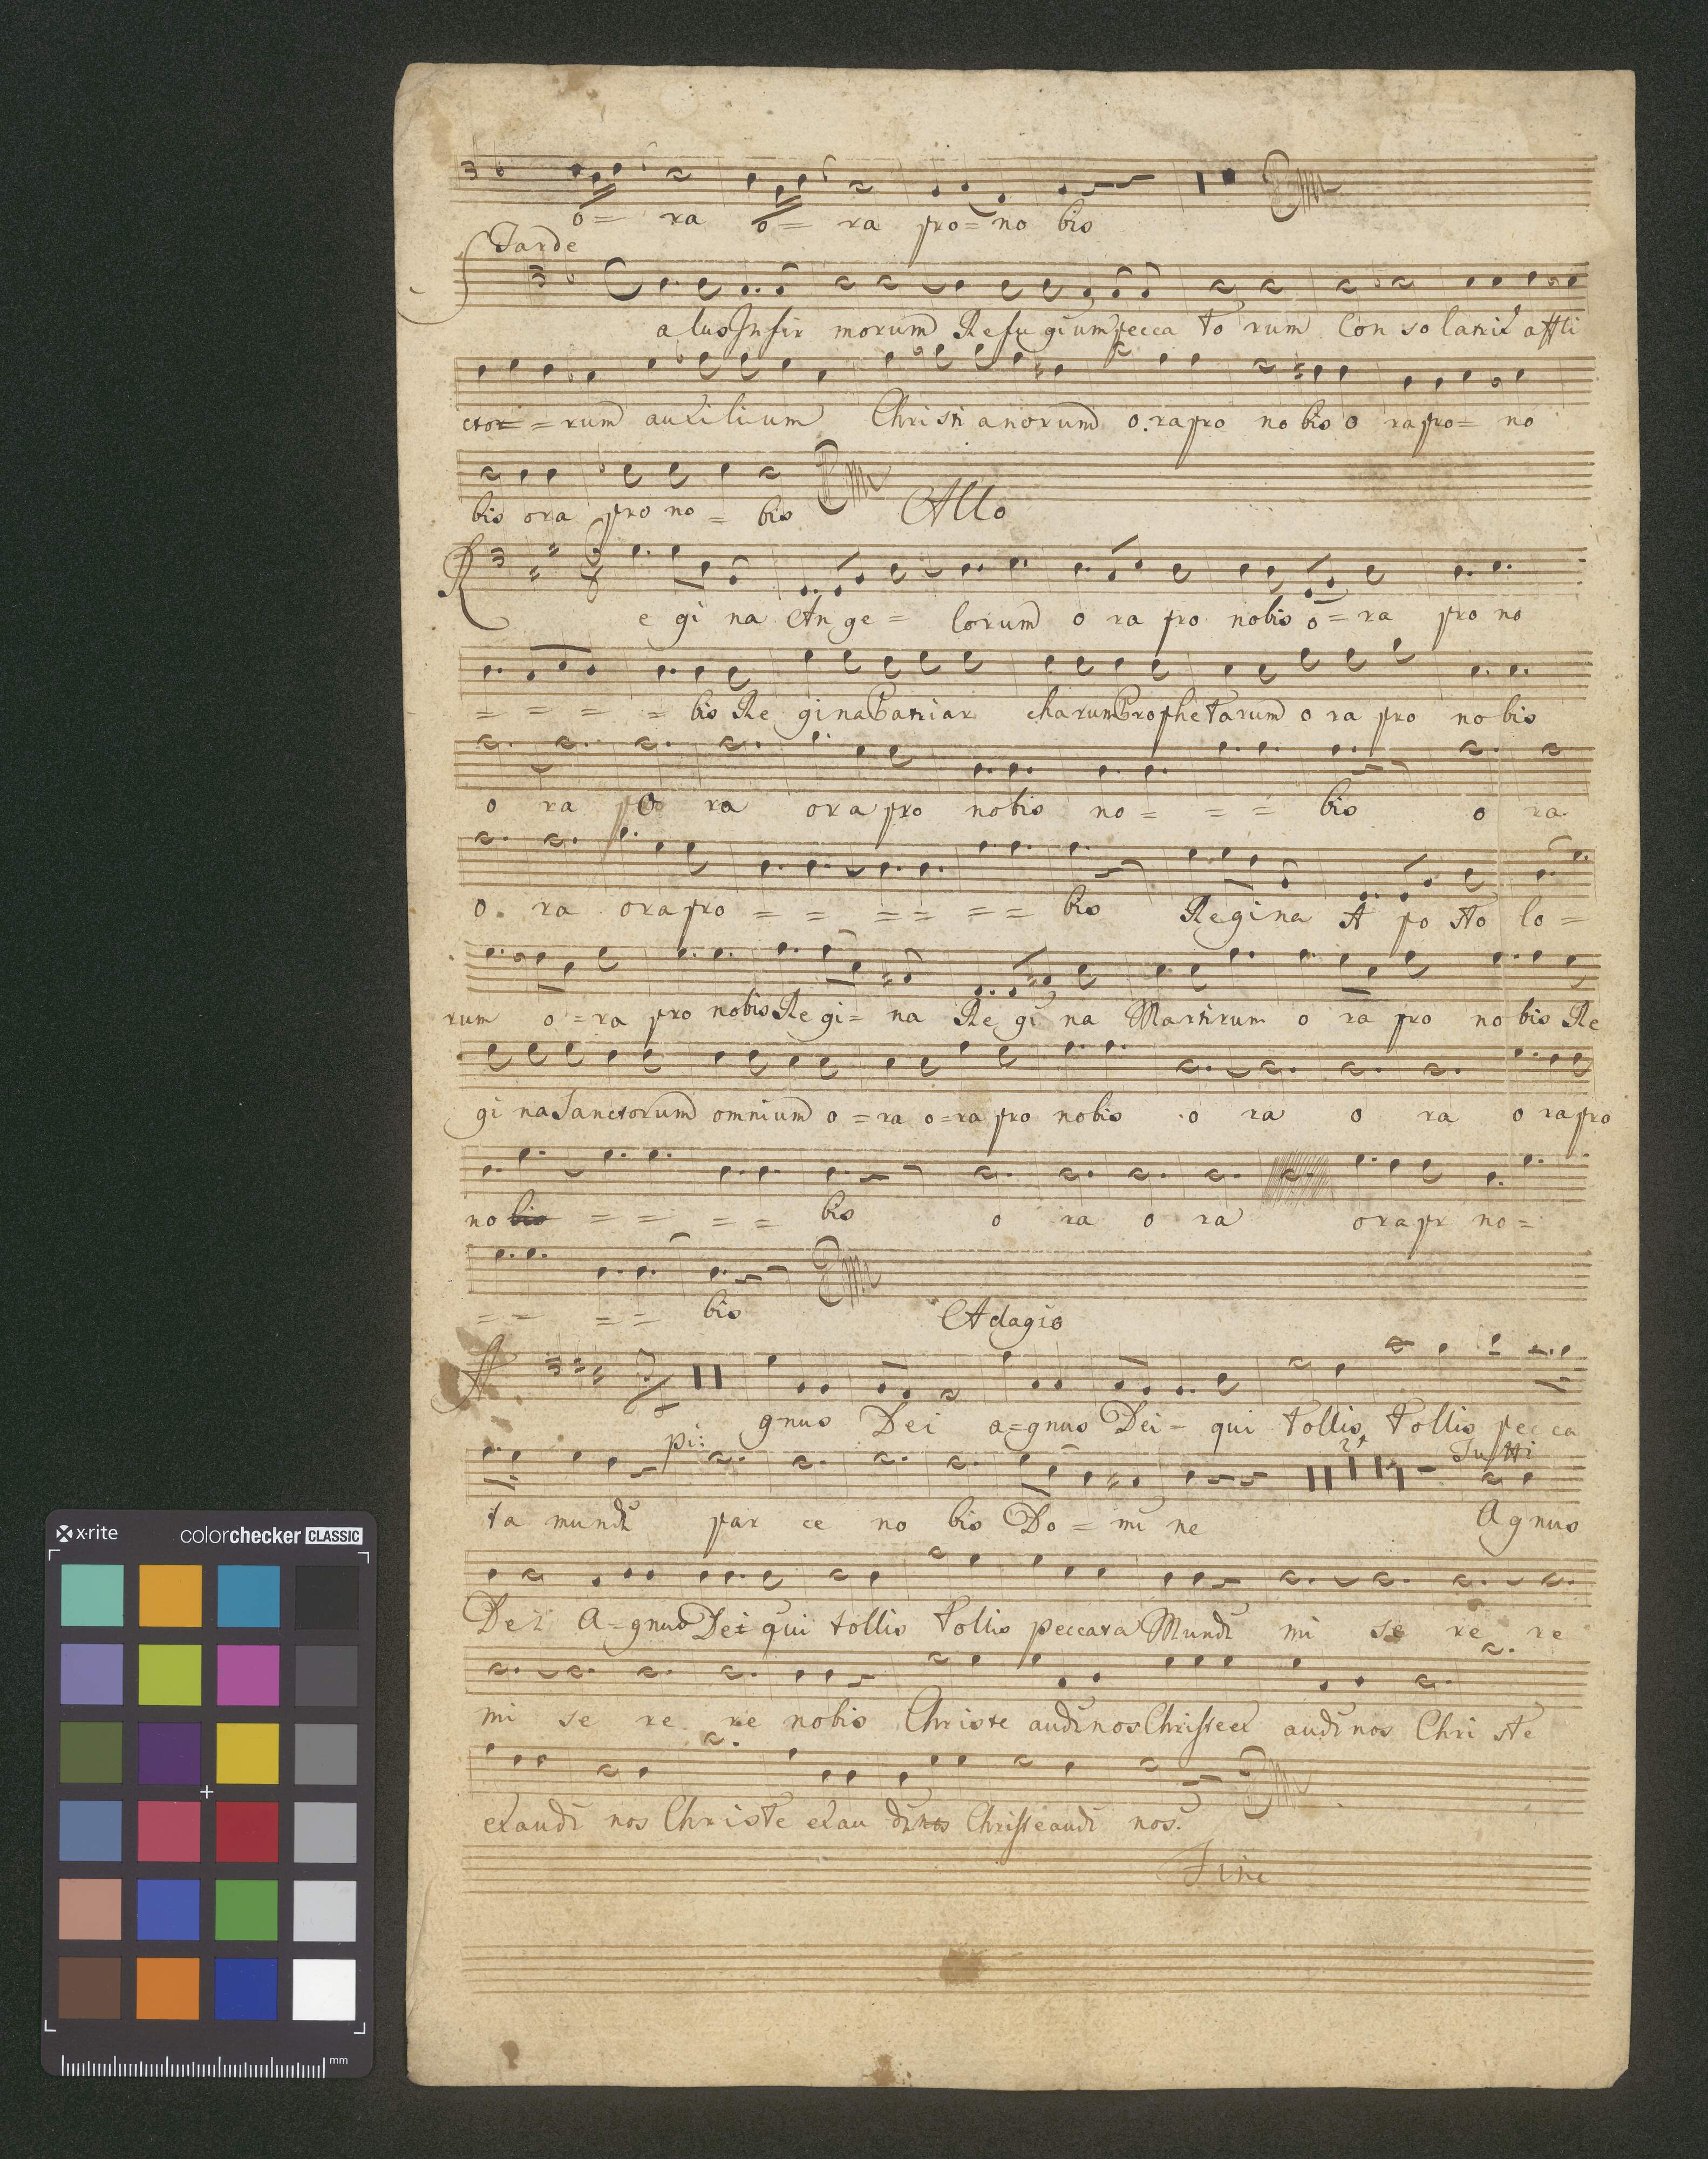 o = ra o = ra pro = no bis
Tarde
S alus Infir morum Refugium pecca to rum Con so latrix affli
ctor = = rum auxilium Christi anorum o ra pro no bis o ra pro = no
bis ora pro no = bis
Allo
R e gi na Ange = lorum o ra pro nobis o = ra pro no
= = = = bis Re gina Patriar charum Prophetarum o ra pro no bis
o ra o ra ora pro nobis no = = = bis o ra
o. ra ora pro = = = = = = bis Regina A po sto lo =
rum o = ra pro nobis Re gi = na Re gi na Martirum o ra pro no bis Re
gi na Sanctorum omnium o = ra o = ra pro nobis o ra o ra o ra pro
no bis = = = = bis o ra o ra ora pr no =
= = = = bis
Adagio
A gnus Dei a = gnus Dei - qui tollis tollis pec ca
pi: Tutti
ta mundi par ce no bis Do = mi ne Agnus
Dei A = gnus Dei qui tollis tollis peccata Mundi mi se re re
mi se re re nobis Christe audi nos Christe ex audi nos Chri ste
exaudi nos Christe exau di nos Christe audi nos.
Fine
x-rite colorchecker CLASSIC
mm